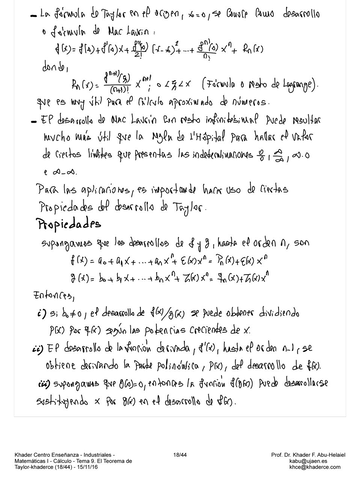 - La fórmula de Taylor en el origen, x=0, se conoce como desarrollo
o fórmula de Mac Laurin:
f(x) = f(0) + f'(0)x + f''(0)/2! (x-0)² + ... + f^(n)(0)/n! x^n + Rn(x)
donde,
Rn(x) = f^(n+1)(ξ)/(n+1)! x^(n+1); 0<ξ<x (Fórmula o resto de Lagrange).
que es muy útil para el cálculo aproximado de números.
- El desarrollo de Mac Laurin con resto infinitesimal puede resultar
mucho más útil que la regla de l'Hôpital para hallar el valor
de ciertos límites que presentan las indeterminaciones 0/0, ∞/∞, ∞·0
e ∞-∞.
Para las aplicaciones, es importante hacer uso de ciertas
Propiedades del desarrollo de Taylor.
Propiedades
Supongamos que los desarrollos de f y g, hasta el orden n, son
f(x) = a₀ + a₁x + ... + anx^n + ε(x)x^n = Pn(x) + ε(x)x^n
g(x) = b₀ + b₁x + ... + bnx^n + η(x)x^n = qn(x) + η(x)x^n
Entonces,
i) si b₀≠0, el desarrollo de f(x)/g(x) se puede obtener dividiendo
P(x) por q(x) según las potencias crecientes de x.
ii) El desarrollo de la función derivada, f'(x), hasta el orden n-1, se
obtiene derivando la parte polinómica, P(x), del desarrollo de f(x).
iii) supongamos que g(0)=0, entonces la función f(g(x)) puede desarrollarse
sustituyendo x por g(x) en el desarrollo de f(x).
Khader Centro Enseñanza - Industriales -
Matemáticas I - Cálculo - Tema 9. El Teorema de
Taylor-khaderce (18/44) - 15/11/16
18/44
Prof. Dr. Khader F. Abu-Helaiel
kabu@ujaen.es
khce@khaderce.com